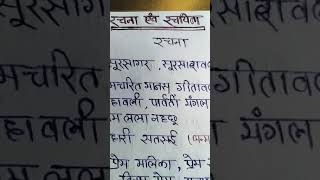 रचना एवं रचयिता
रचना
सूरसागर, सूरसाराव
मचरित मानस, गीताव
हावली, पार्वती मंगल
म लला नहछू
हारी सतसई
प्रेम मालिका, प्रेम